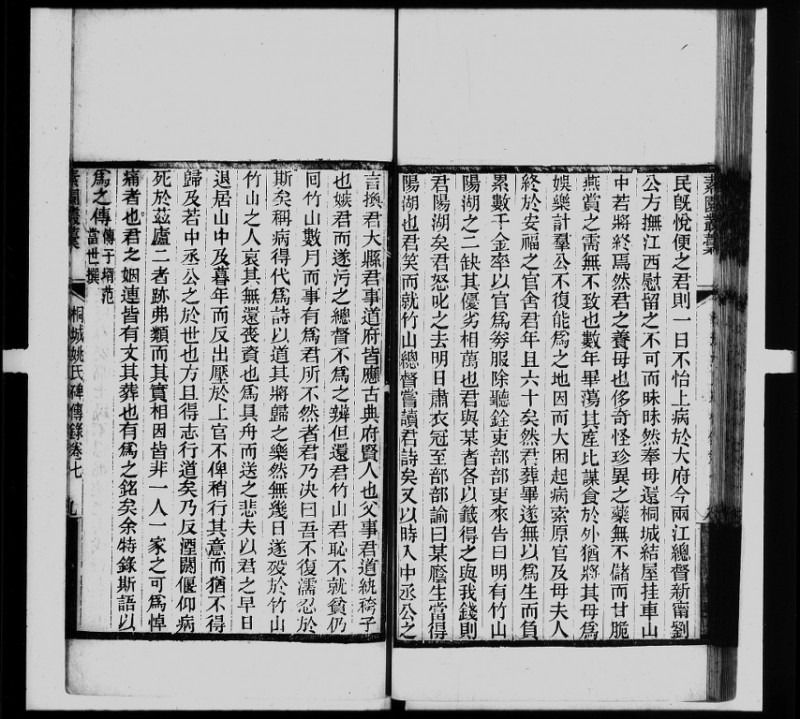 民既悅便之君則一日不怡上病於大府今兩江總督新甯劉
公方撫江西慰留之不可而昧昧然奉母還桐城結屋挂車山
中若將終焉然君之養母也侈奇怪珍異之藥無不儲而甘脆
燕賞之需無不致也數年畢蕩其產比謀食於外猶將其母爲
娛樂計羣公不復能爲之地因而大困起病索原官及母夫人
終於安福之官舍君年且六十矣然君葬畢遂無以爲生而負
累數千金率以官爲劵服除聽銓吏部部吏來告曰明有竹山
陽湖之二缺其優劣相萬也君與某者各以籤得之與我錢則
君陽湖矣君怒叱之去明日肅衣冠至部部諭曰某廕生當得
陽湖也君笑而就竹山總督嘗讀君詩矣又以時入中丞公之
言換君大縣君事道府皆應古典府賢人也父事君道紈袴子
也嫉君而遂污之總督不爲之辨但還君竹山君恥不就貧仍
同竹山數月而事有爲君所不然者君乃決曰吾不復濡忍於
斯矣稱病得代爲詩以道其將歸之樂然無幾日遂歿於竹山
竹山之人哀其無還喪資也爲具舟而送之悲夫以君之早日
退居山中及暮年而反出壓於上官不俾稍行其意而猶不得
歸及若中丞公之於世也方且得志行道矣乃反湮閼偃仰病
死於茲廬二者跡弗類而其實相因皆非一人一家之可爲悼
痛者也君之姻連皆有文其葬也有爲之銘矣余特錄斯語以
爲之傳 傳子壻范當世撰
素園叢藁
桐城姚氏碑傳錄卷七
九